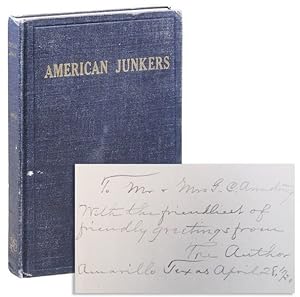 AMERICAN JUNKERS
To Mr & Mrs G. C.
With the friendliest of
friendly greetings from
The Author
Amarillo Texas April 28,